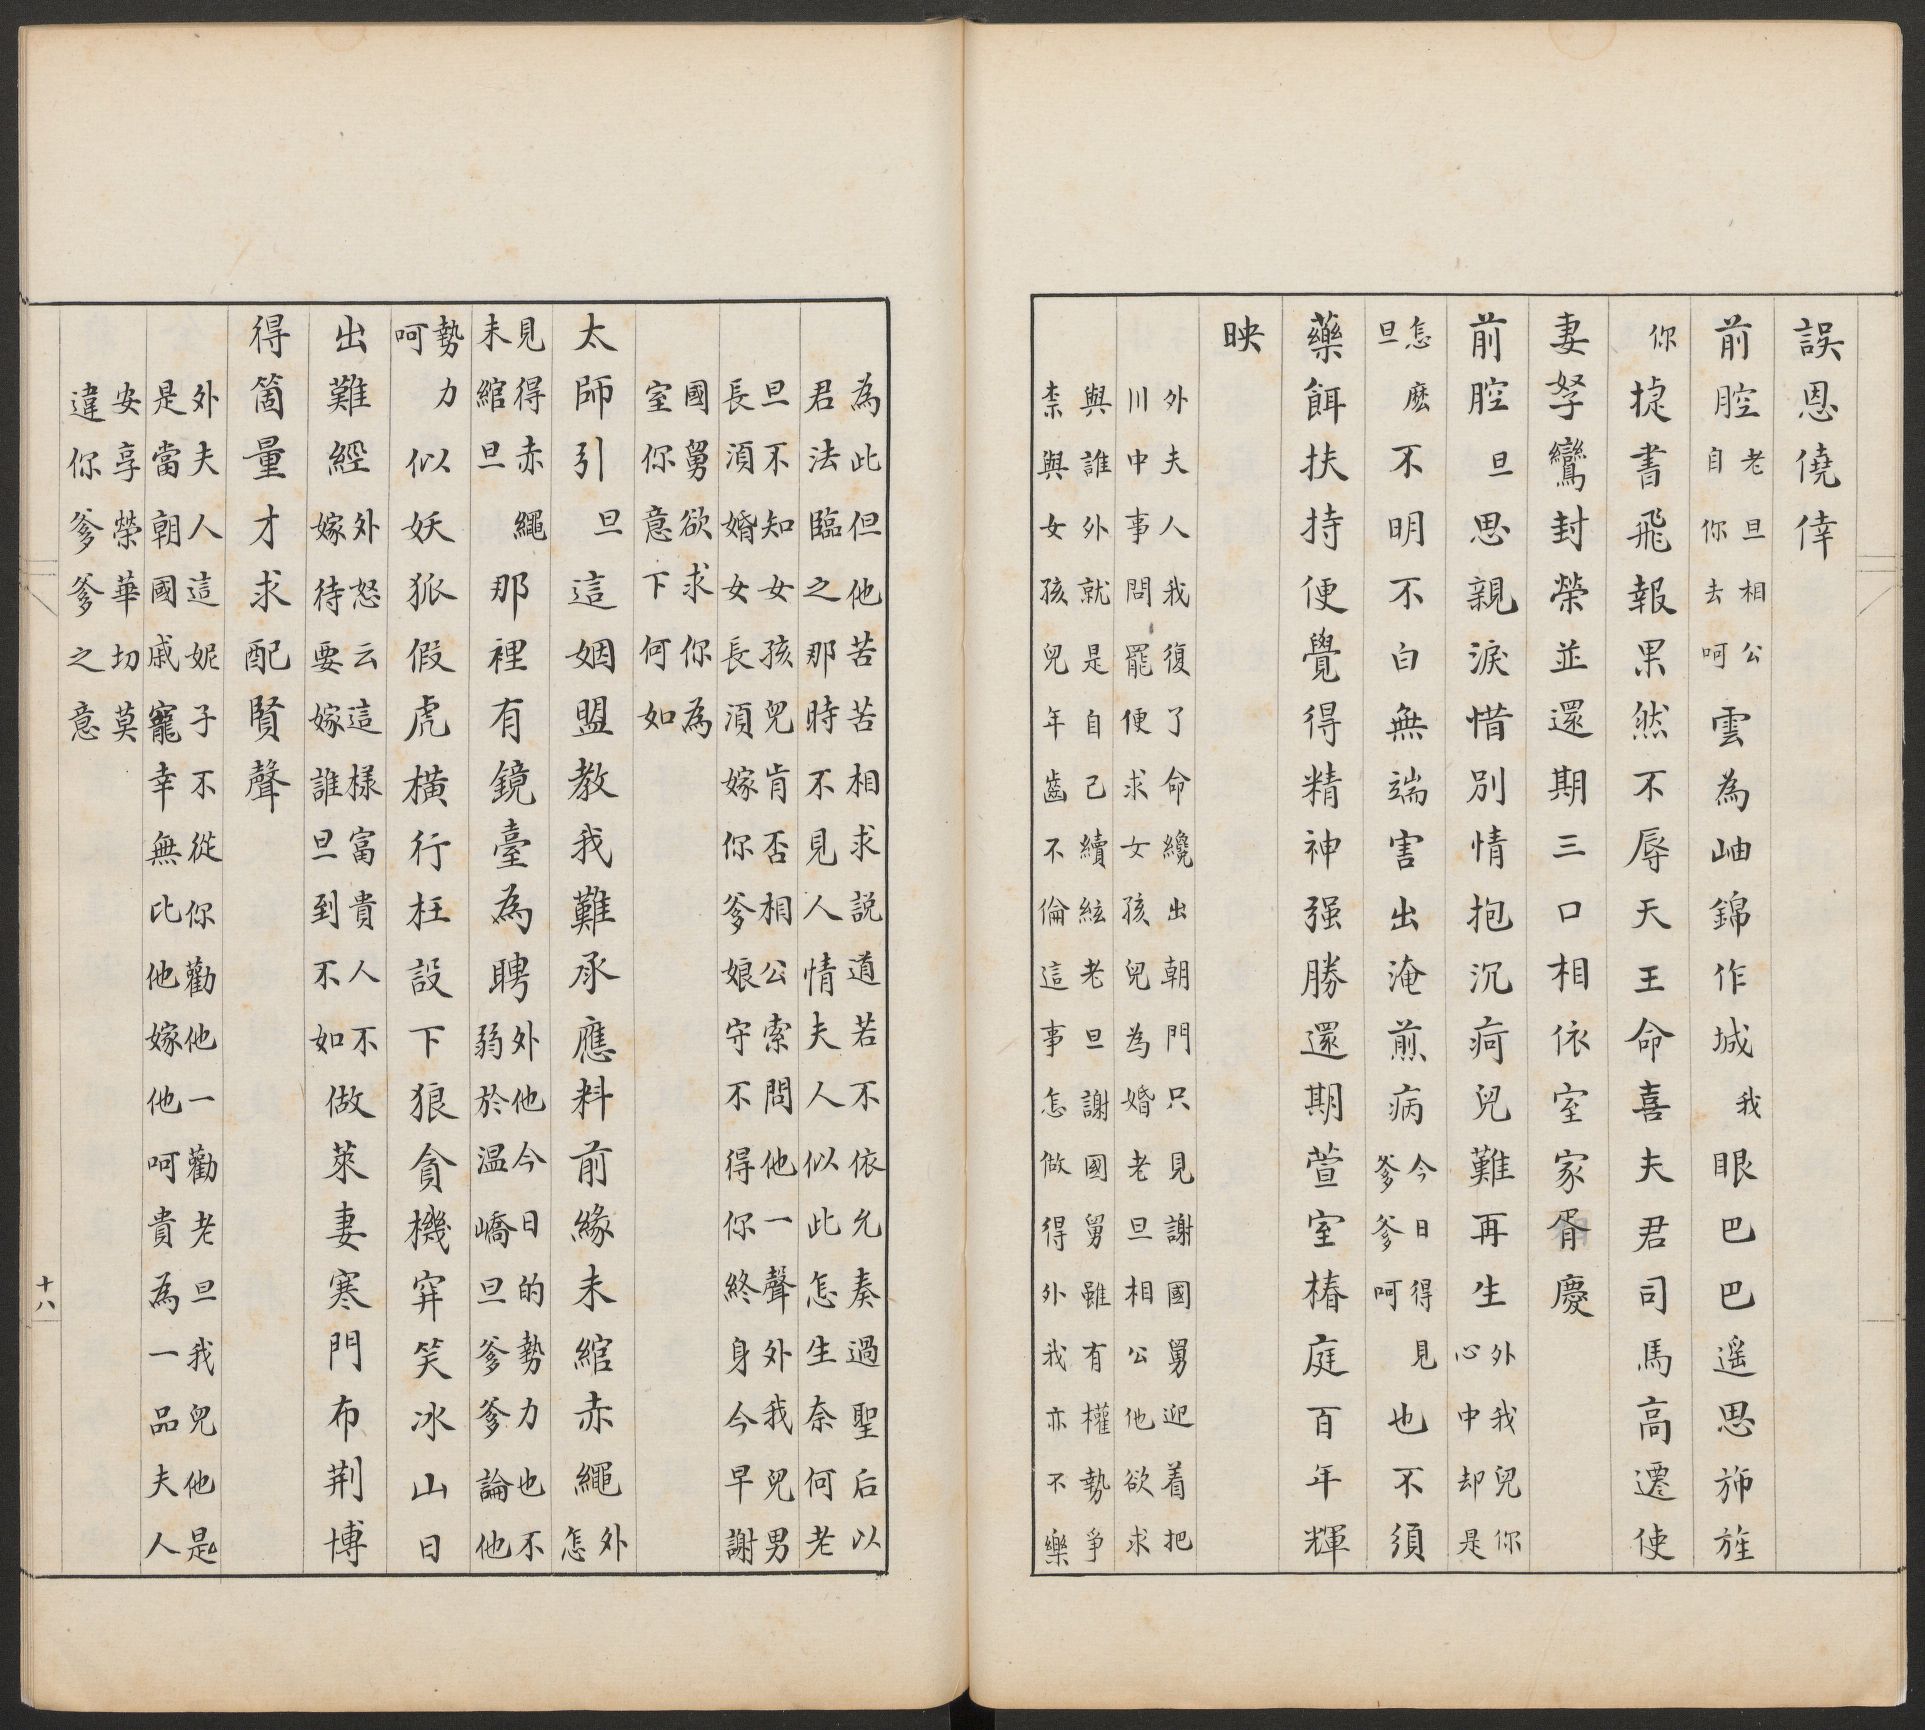 誤恩僥倖
前腔老旦相公自你去呵雲為岫錦作城我眼巴巴遥思斾旌
你捷書飛報果然不辱天王命喜夫君司馬高遷使
妻孥鸞封榮並還期三口相依室家胥慶
前腔旦思親淚惜別情抱沉疴兒難再生外我兒你心中却是
怎麽旦不明不白無端害出淹煎病今日得見爹爹呵也不須
藥餌扶持便覺得精神强勝還期萱室椿庭百年輝
映
外夫人我復了命纔出朝門只見謝國舅迎着把
川中事問罷便求女孩兒為婚老旦相公他欲求
與誰外就是自己續絃老旦謝國舅雖有權勢爭
柰與女孩兒年齒不倫這事怎做得外我亦不樂
為此但他苦苦相求説道若不依允奏過聖后以
君法臨之那時不見人情夫人似此怎生奈何老
旦不知女孩兒肯否相公索問他一聲外我兒男
長湏婚女長湏嫁你爹娘守不得你終身今早謝
國舅欲求你為
室你意下何如
太師引旦這姻盟教我難承應料前緣未綰赤繩外怎
見得赤繩未綰旦那裡有鏡臺為聘外他今日的勢力也不弱於温嶠旦爹爹論他
勢力呵似妖狐假虎横行枉設下狼貪機穽笑冰山日
出難經外怒云這樣富貴人不嫁待要嫁誰旦到不如做萊妻寒門布荆博
得箇量才求配賢聲
外夫人這妮子不從你勸他一勸老旦我兒他是
是當朝國戚寵幸無比他嫁他呵貴為一品夫人
安享榮華切莫
違你爹爹之意
十八